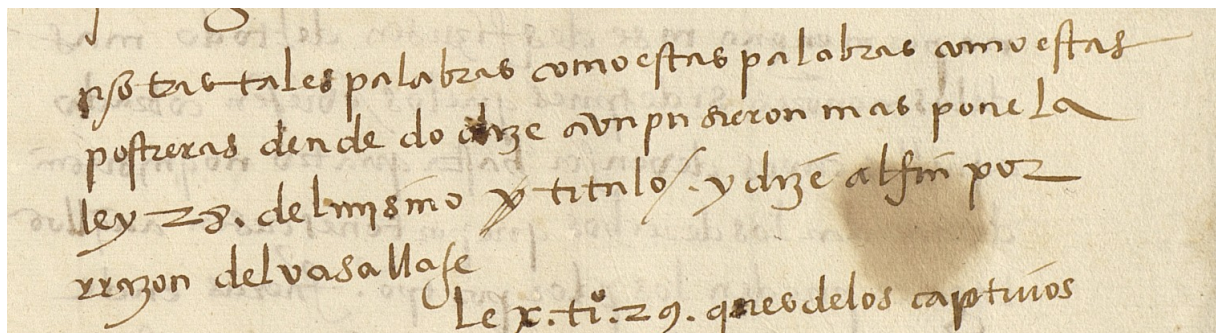 otras tales palabras como estas palabras como estas
postreras dende do dize avn pusieron mas pone la
ley 28. del mismo titulo. y dize al fin por
rrazon del vasallaje
Le x. ti. 29. ques delos captivos